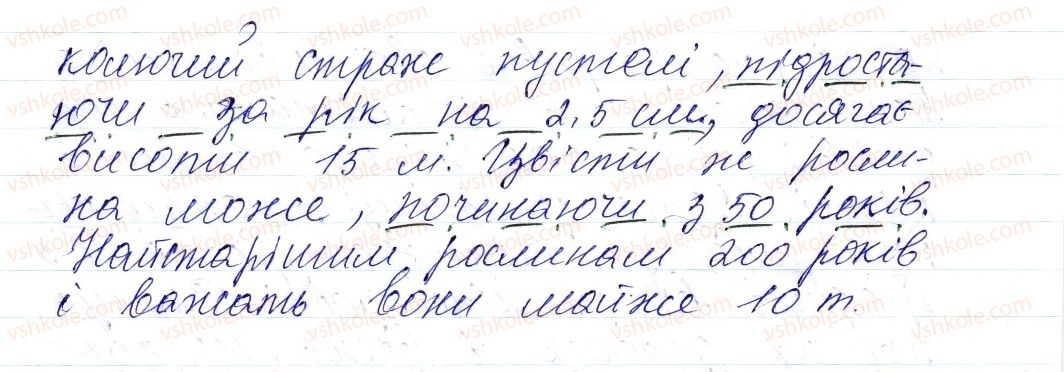 колючий страж пустелі, підроста-
ючи за рік на 2,5 см, досягає
висоти 15 м. Цвісти ж росли-
на може, починаючи з 50 років.
Найстарішим рослинам 200 років
і важать вони майже 10 т.